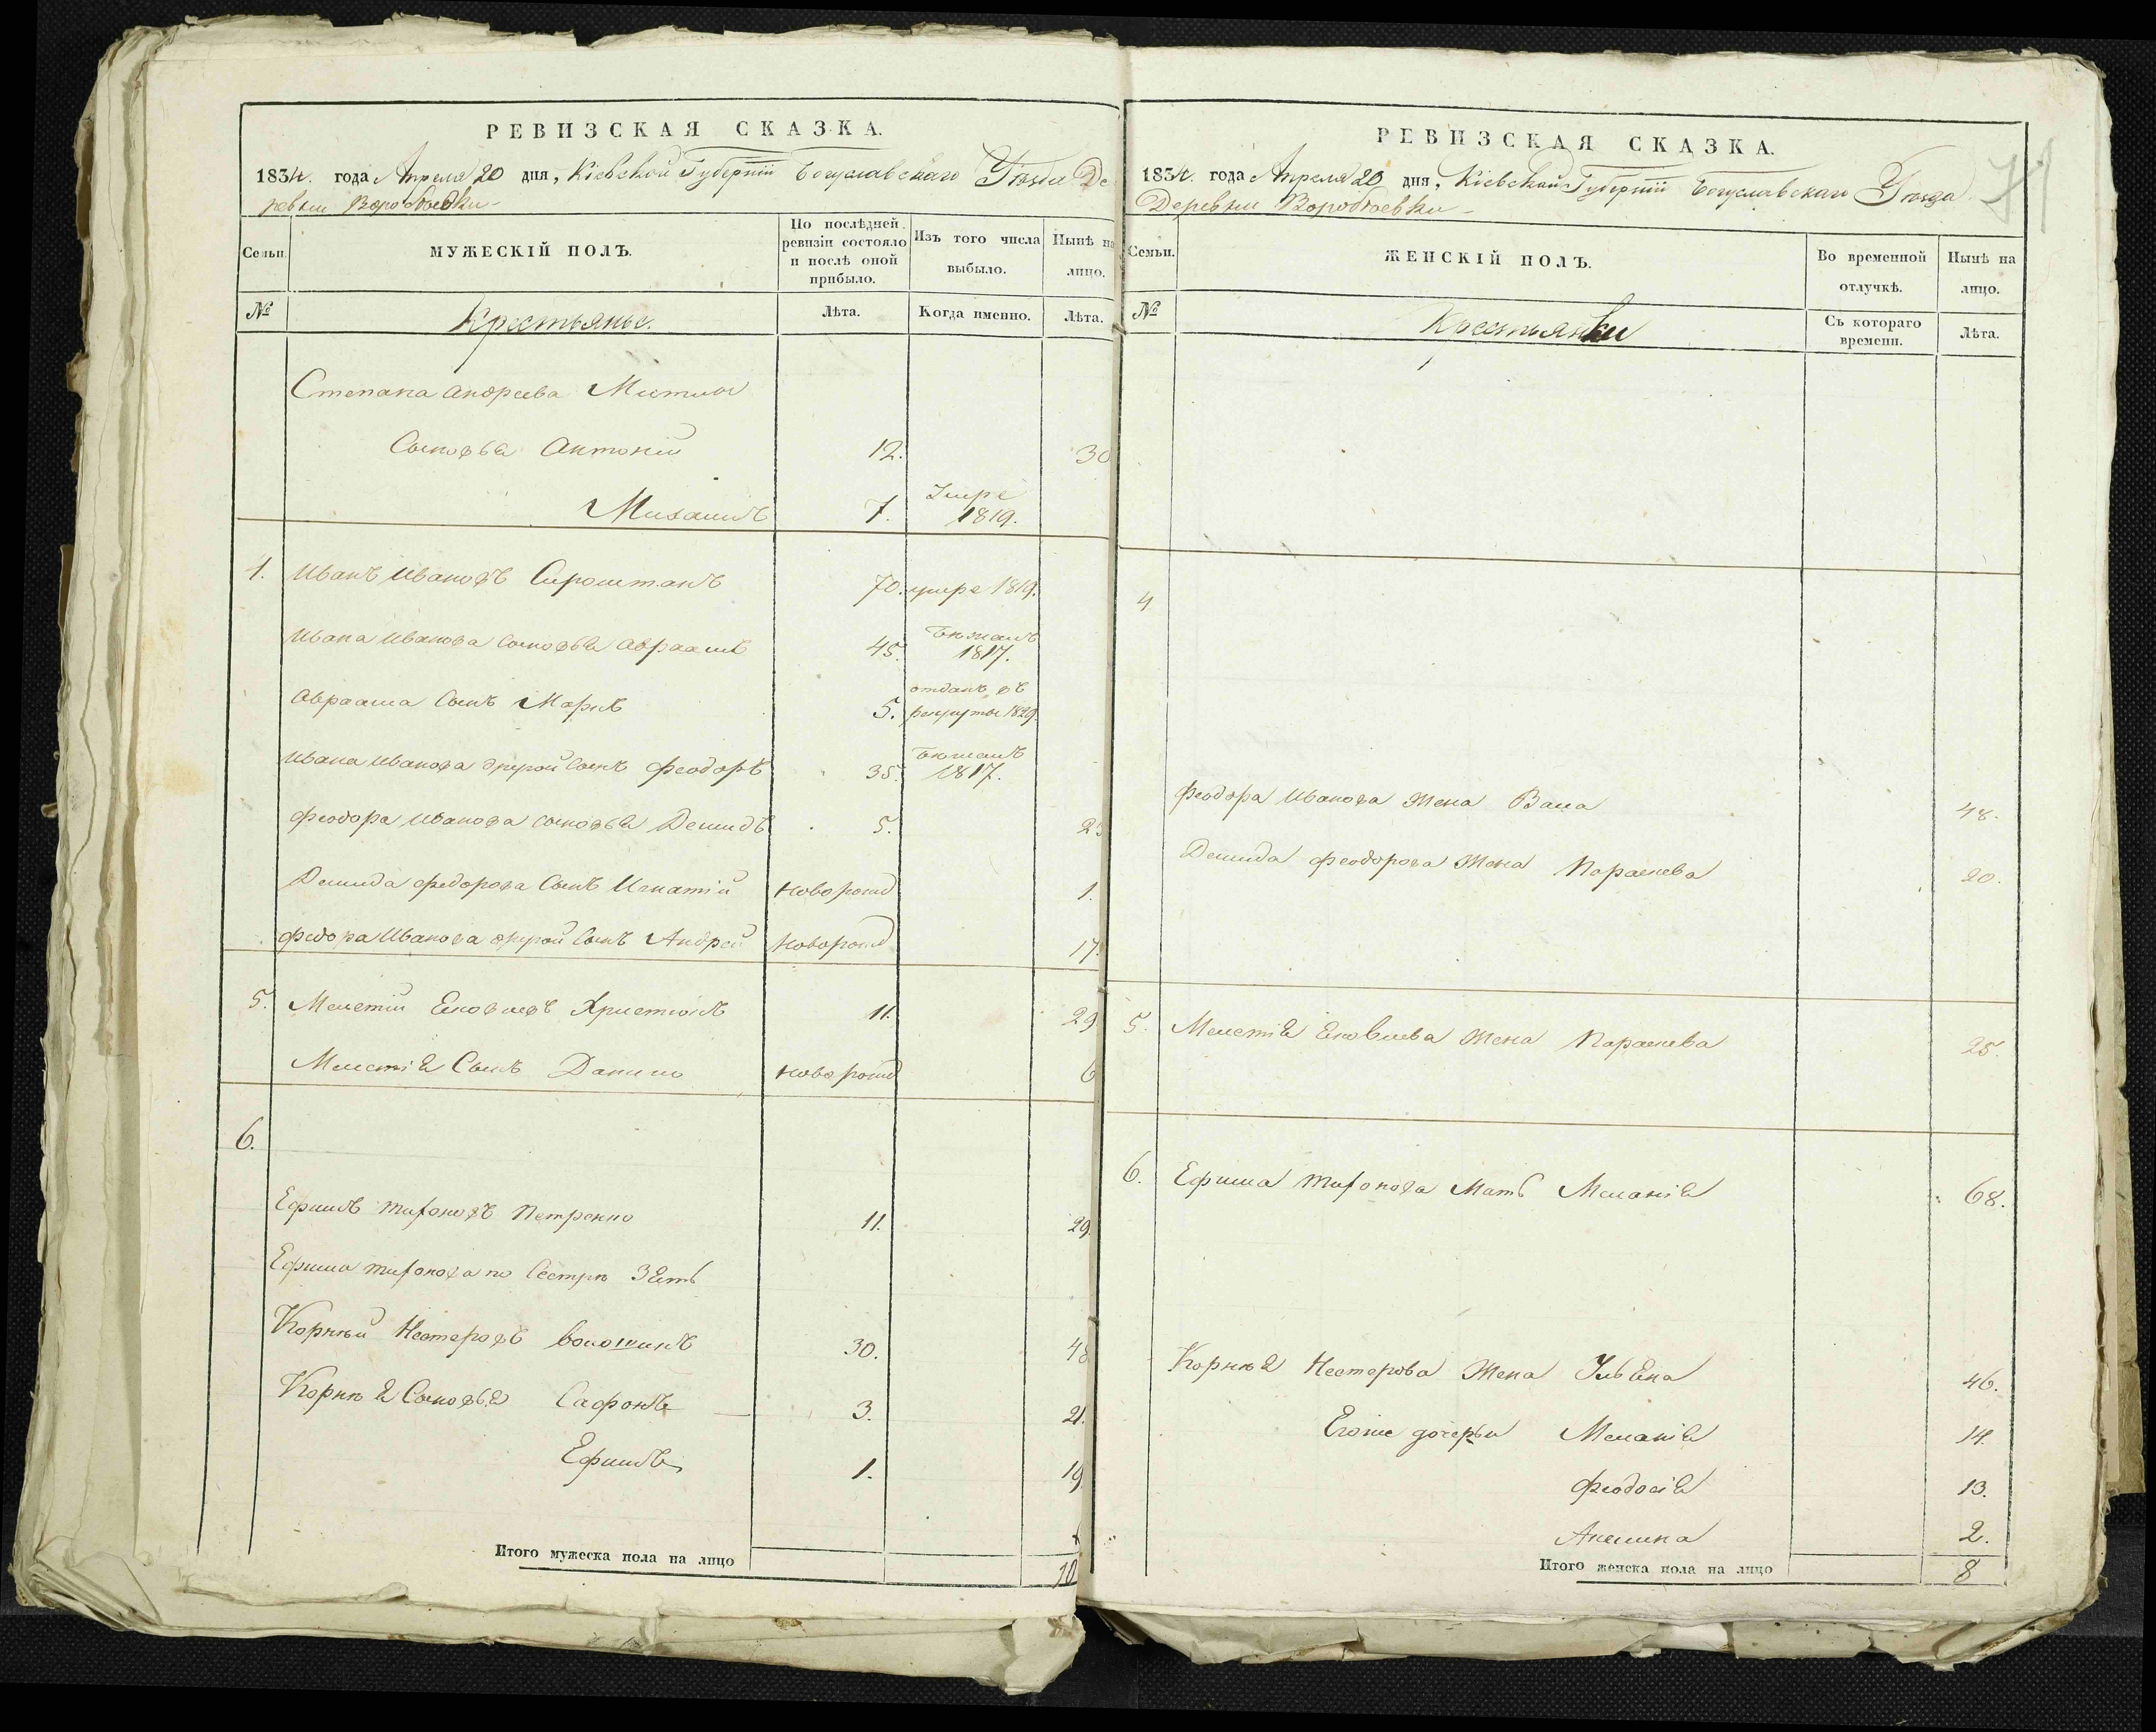 РЕВИЗСКАЯ СКАЗКА.
1834. года Апреля 20 дня, Кіевской Губерніи Богуславскаго Уѣзда Де
ревни Воробіевки
Семьи.
МУЖЕСКІЙ ПОЛЪ.
По послѣдней ревизіи состояло и послѣ оной прибыло.
Изъ того числа выбыло.
Нынѣ на лицо.
№
Крестьяне.
Лѣта.
Когда именно.
Лѣта.
Степана Андреева
Сыновья Антоній 12. 30
Михаилъ 7. Умре 1819.
4. Иванъ Ивановъ Сироштанъ 70. умре 1819.
Ивана Иванова сыновья Авраамъ 45. Бежалъ 1817.
Авраама Сынъ Маркъ 5. отданъ въ рекруты 1829.
Ивана Иванова другой Сынъ Феодоръ 35. Бежалъ 1817.
Феодора Иванова сыновья Демидъ 5. 23
Демида Федорова Сынъ Игнатій новорожд 1.
Федора Иванова другой Сынъ Андрей новорожд 17.
5. Мелетій Яковлевъ 11. 29
Мелетія Сынъ Данило новорожд 6
6.
Ефимъ Тихоновъ Петренко 11. 29.
Ефима Тихонова по Сестрѣ Зять
Корнѣй Нестеровъ Волошинъ 30. 48
Корнѣя Сыновья Сафонъ 3. 21.
Ефимъ 1. 19
Итого мужеска пола на лицо 10
РЕВИЗСКАЯ СКАЗКА.
1834. года Апреля 20 дня, Кіевской Губерніи Богуславскаго Уѣзда
Деревни Воробіевки
Семьи.
ЖЕНСКІЙ ПОЛЪ.
Во временной отлучкѣ.
Нынѣ на лицо.
№
Крестьянки
Съ котораго времени.
Лѣта.
4
Феодора Иванова Жена 48.
Демида Феодорова Жена Параскева 20.
5. Мелетія Яковлева Жена Параскева 25.
6. Ефима Тихонова Мать Меланія 68.
Корнѣя Нестерова Жена Ульяна 46.
Егоже дочеры Меланія 14.
Феодосія 13.
Акилина 2.
Итого женска пола на лицо 8